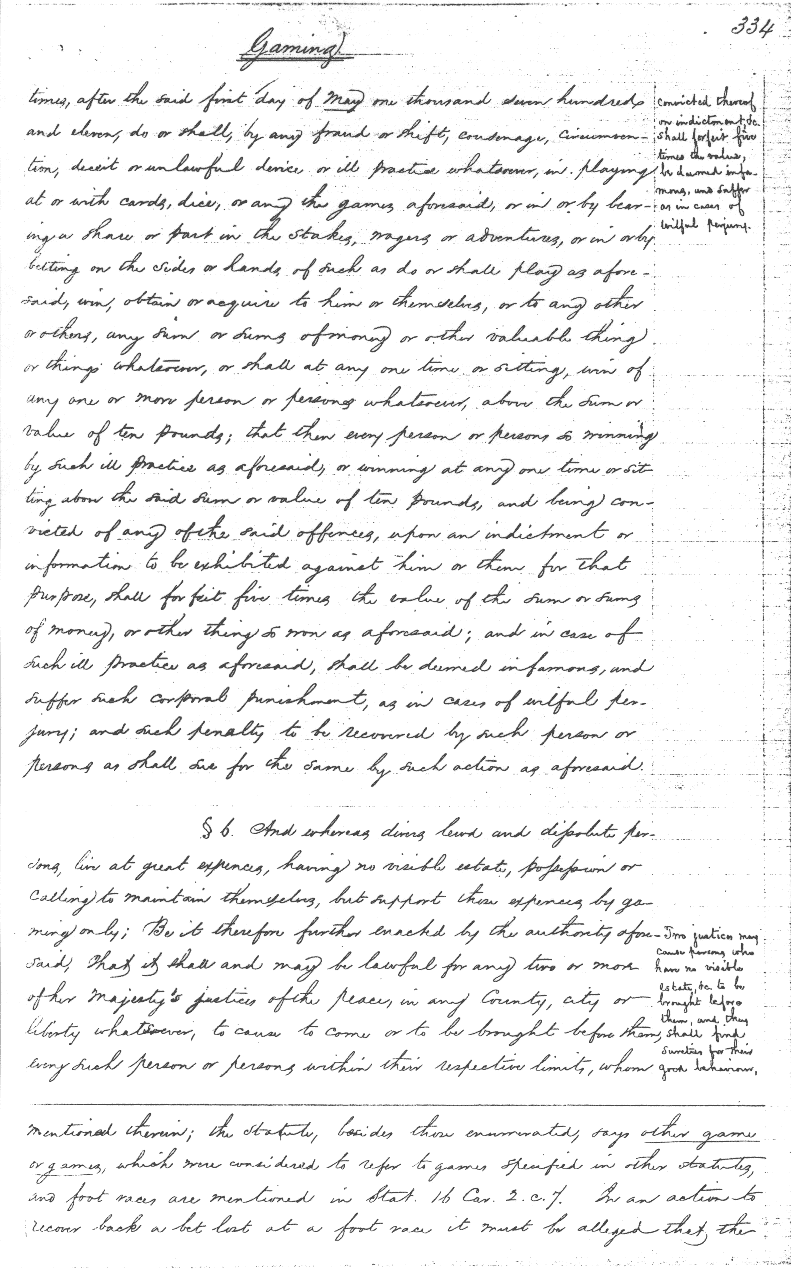 334
Gaming
times, after the said first day of May one thousand seven hundred
and eleven, do or shall, by any fraud or shift, cousenage, circumven-
tion, deceit or unlawful device or ill practice whatsoever, in playing
at or with cards, dice, or any the games aforesaid, or in or by bear-
ing a share or part in the stakes, wagers or adventures, or in or by
betting on the sides or hands of such as do or shall play as afore-
said, win, obtain or acquire to him or themselves, or to any other
or others, any sum or sums of money or other valuable thing
or things whatsoever, or shall at any one time or sitting, win of
any one or more person or persons whatsoever, above the sum or
value of ten pounds; that then every person or persons so winning
by such ill practice as aforesaid, or winning at any one time or sit-
ting above the said sum or value of ten pounds, and being con-
victed of any of the said offences, upon an indictment or
information to be exhibited against him or them for that
purpose, shall forfeit five times the value of the sum or sums
of money, or other thing so won as aforesaid; and in case of
such ill practice as aforesaid, shall be deemed infamous, and
suffer such corporal punishment, as in cases of wilful per-
jury; and such penalty to be recovered by such person or
persons as shall sue for the same by such action as aforesaid.
convicted thereof
on indictment, &c.
shall forfeit five
times the value,
be deemed infa-
mous, and suffer
as in cases of
wilful perjury.
§ 6. And whereas divers lewd and dissolute per-
sons, live at great expences, having no visible estate, possession or
calling to maintain themselves, but support those expences by ga-
ming only; Be it therefore further enacted by the authority afore-
said, That it shall and may be lawful for any two or more
of her Majesty's justices of the peace, in any County, city or
liberty whatsoever, to cause to come or to be brought before them,
every such person or persons within their respective limits, whom
Two justices may
cause persons who
have no visible
estate, &c. to be
brought before
them, and they
shall find
sureties for their
good behaviour,
mentioned therein; the statute, besides those enumerated, says other game
or games, which were considered to refer to games specified in other statutes,
and foot races are mentioned in Stat. 16 Car. 2. c. 7. In an action to
recover back a bet lost at a foot race it must be alleged that the